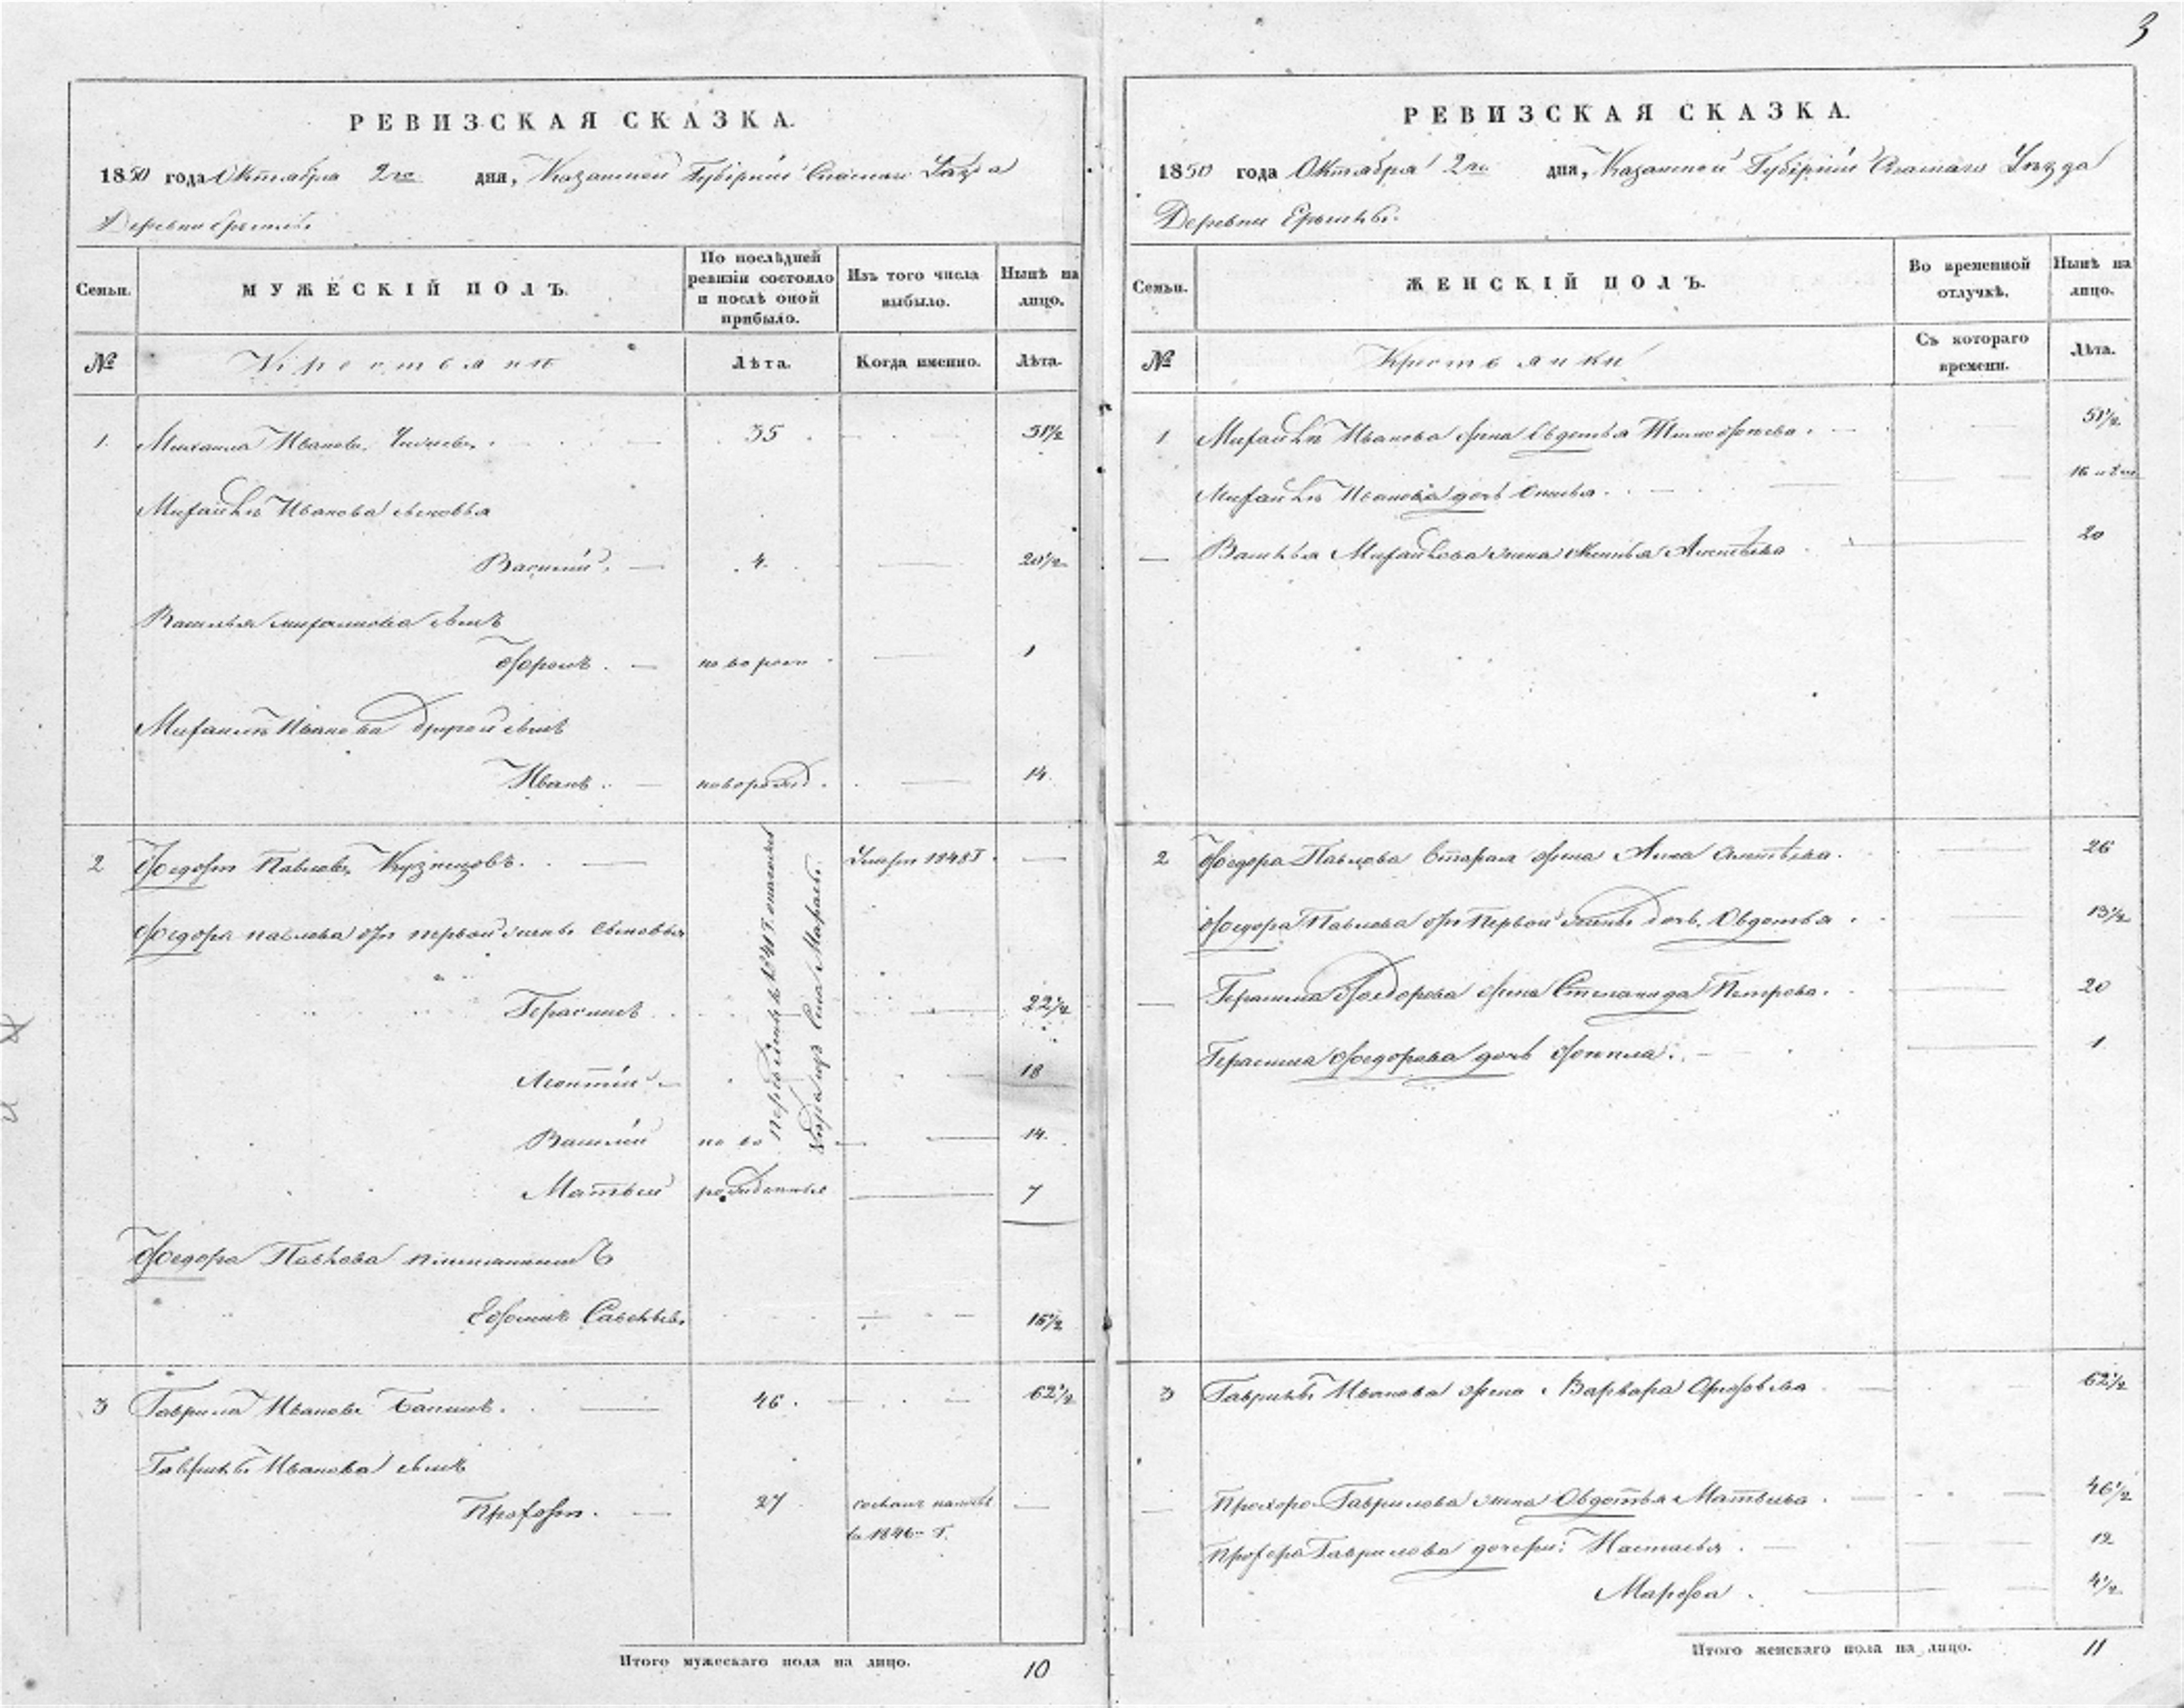 3
РЕВИЗСКАЯ СКАЗКА.
1850 года Октября 2го дня, Казанской Губерніи Спаскаго Уезда
Деревни
СЕМЬИ. МУЖЕСКІЙ ПОЛЪ. По последней ревизіи состояло и после оной прибыло. Изъ того числа выбыло. Ныне на лицо.
№ Крестьяне Лѣта. Когда именно. Лѣта.
1. Михаила Ивановъ 35 51½
Михайлы Иванова сыновья
Василій. 4. 20½
Василья Михайлова сынъ
новорож 1
Михайлы Иванова другой сынъ
Иванъ. новорожд. 14
2 Федоръ Павловъ Кузнецовъ. Умеръ 1848 Г.
Федора Павлова отъ первой жены сыновья
переведены въ 1841 Г.
Герасимъ 22½
Леонтій 18
Василій ново 14
Матвей рожденные 7
Федора Павлова
Ефимъ Савельевъ 16½
3 Гаврила Ивановъ 46. 62½
Гаврилы Иванова сынъ
Прохоръ. 27
въ 1846 Г.
Итого мужескаго пола на лицо. 10
РЕВИЗСКАЯ СКАЗКА.
1850 года Октября 2го дня, Казанской Губерніи Спаскаго Уезда
Деревни
Семьи. ЖЕНСКІЙ ПОЛЪ. Во временной отлучкѣ. Нынѣ на лицо.
№ Крестьянки Съ котораго времени. Лѣта.
1 Михайлы Иванова жена Авдотья 51½
Михайлы Иванова дочь 16
Василья Михайлова жена Алексѣева 20
2 Федора Павлова вторая жена Анна 26
Федора Павлова отъ Первой жены дочь Овдотья 13½
Герасима Федорова жена Степанида Петрова. 20
Герасима Федорова дочь 1
3 Гаврилы Иванова жена Варвара 62½
Прохора Гаврилова жена Овдотья Матвеева 46½
Прохора Гаврилова дочери: Настасья 12
Марфа 4½
Итого женскаго пола на лицо. 11